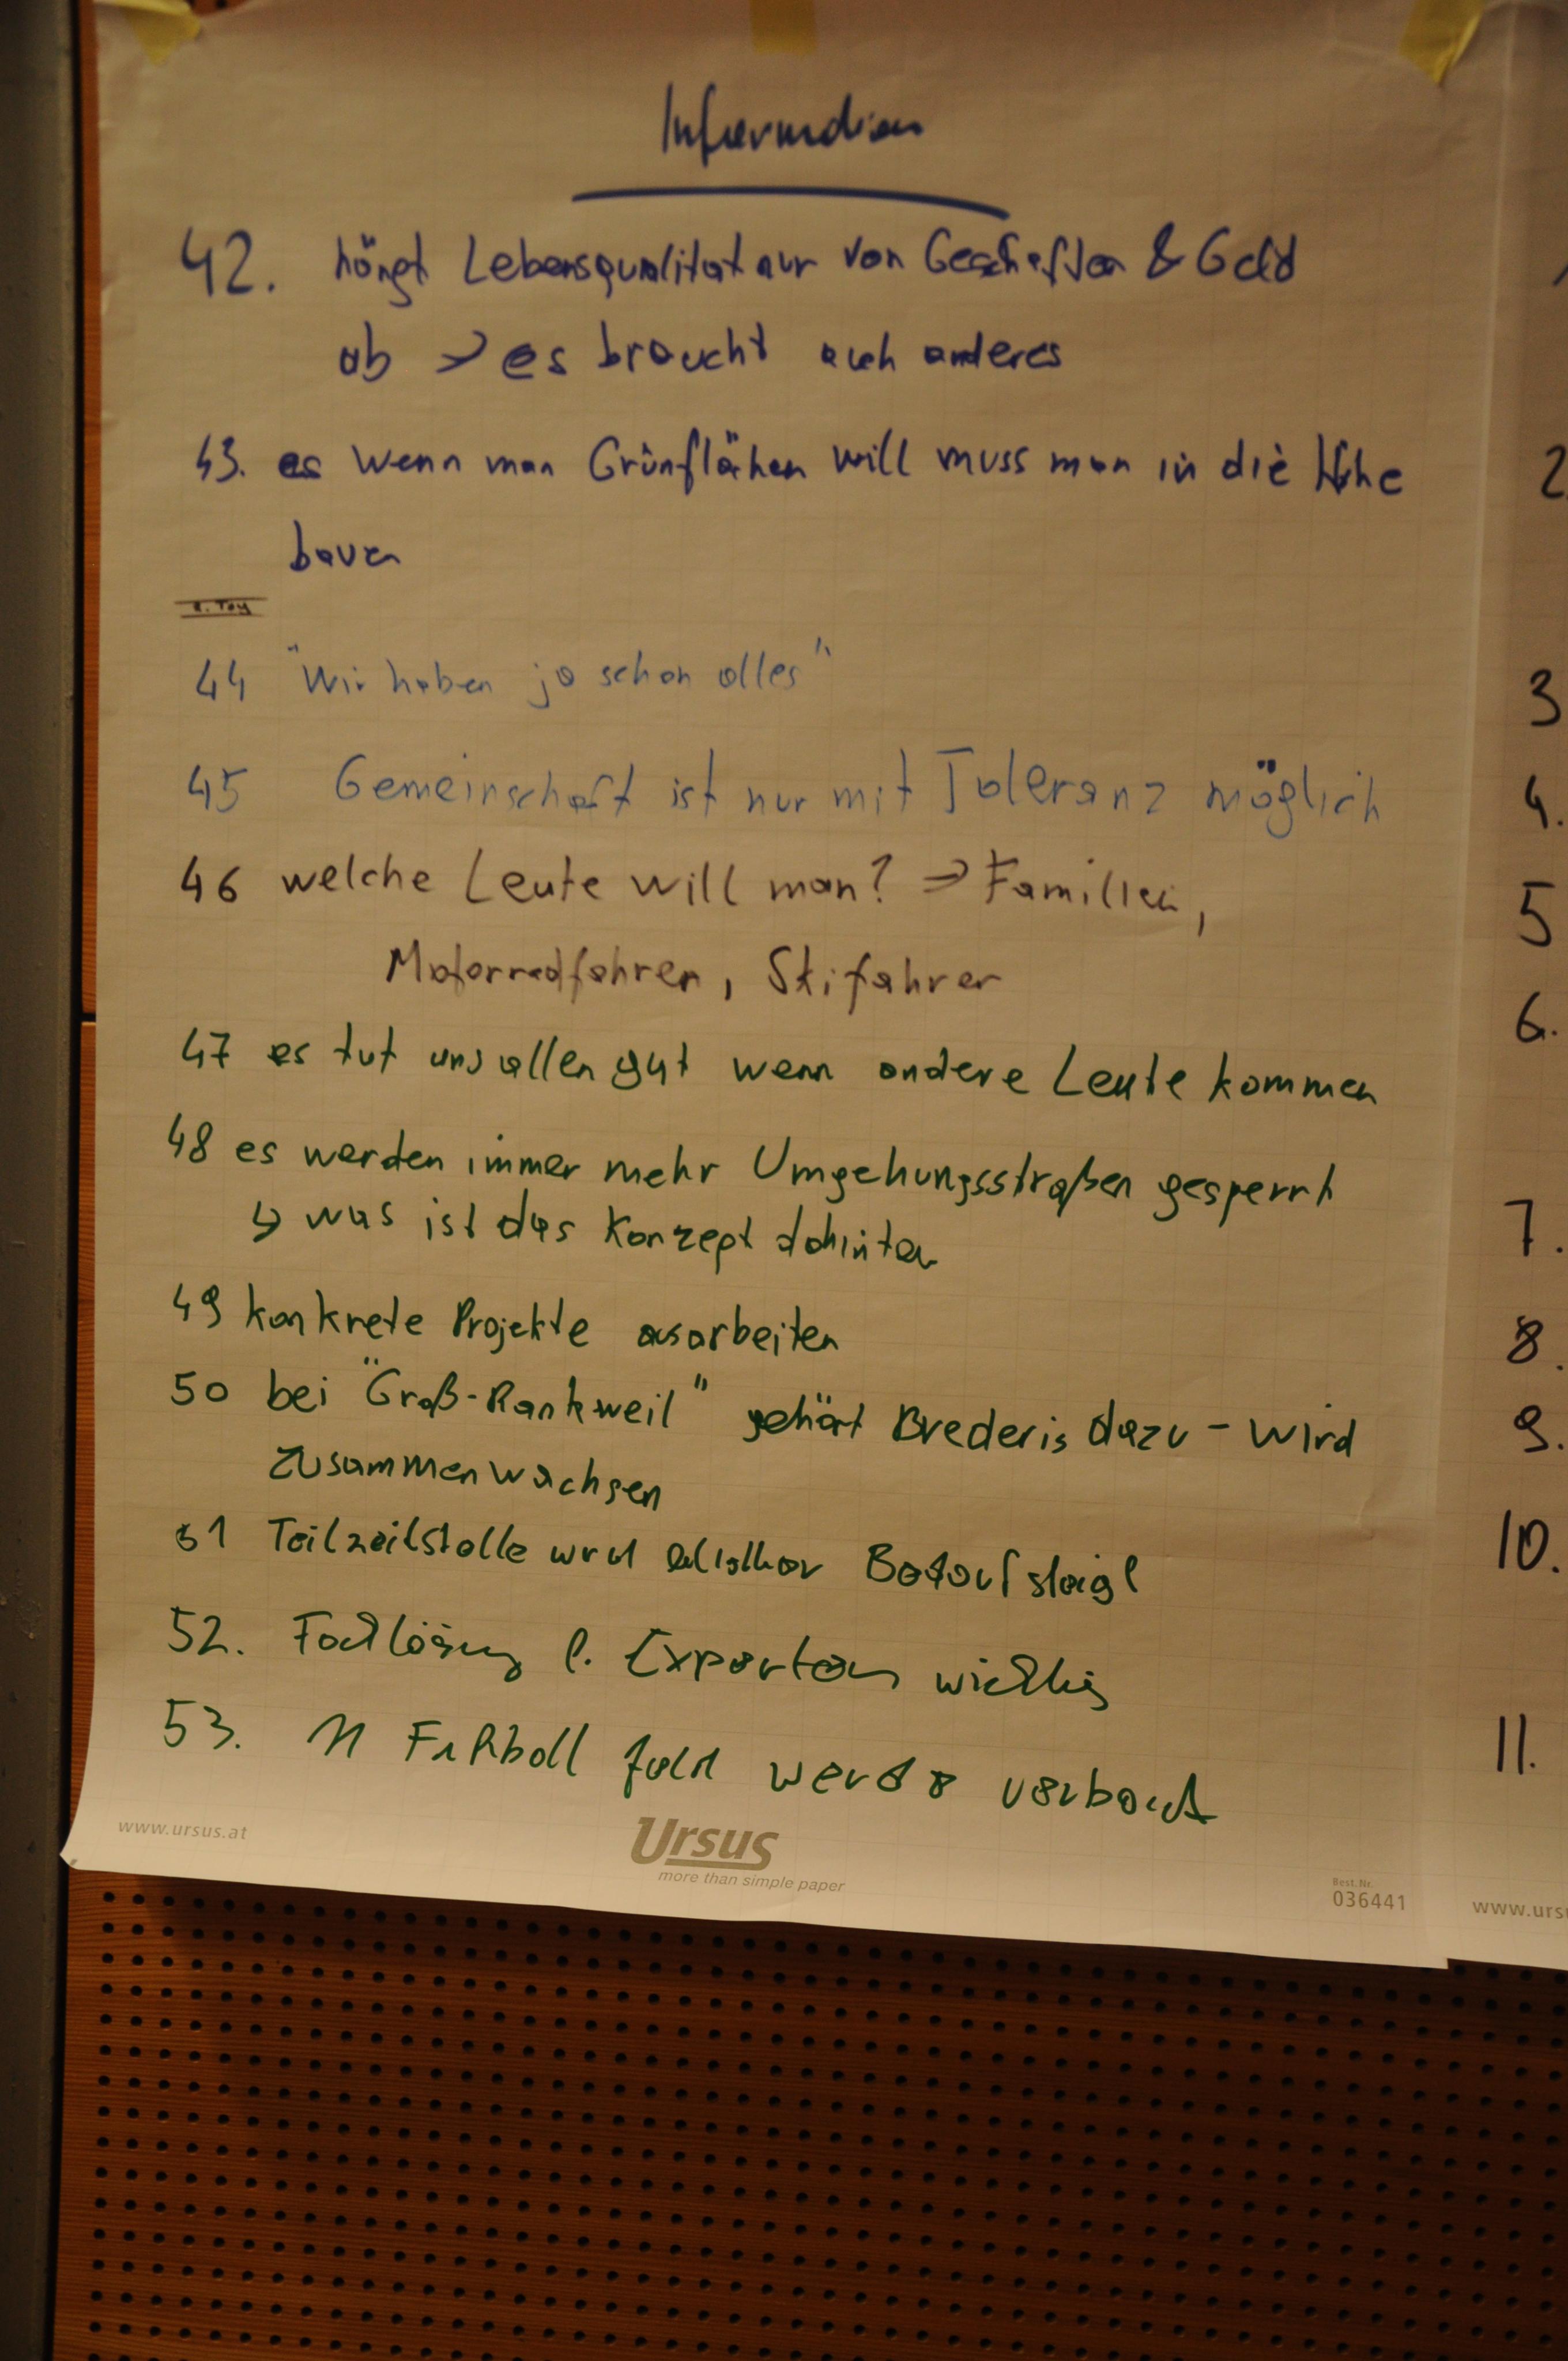 Information
42. hängt Lebensqualität nur von Geschäften & Geld
ab → es braucht auch anderes
43. es wenn man Grünflächen will muss man in die Höhe
bauen
2. Tag
44 "Wir haben ja schon alles"
45 Gemeinschaft ist nur mit Toleranz möglich
46 welche Leute will man? ⇒ Familien,
Motorradfahrer, Skifahrer
47 es tut uns allen gut wenn andere Leute kommen
48 es werden immer mehr Umgehungsstraßen gesperrt
↳ was ist das Konzept dahinter
49 konkrete Projekte ausarbeiten
50 bei "Groß-Rankweil" gehört Brederis dazu - wird
zusammenwachsen
51 Teilzeitstelle wird Bedarf steigt
52. Exporteure wichtig
53. Fußball verbaut
www.ursus.at
Ursus
more than simple paper
Best.Nr.
036441
2
3
4.
5
6.
7.
8.
9.
10.
11.
www.urs